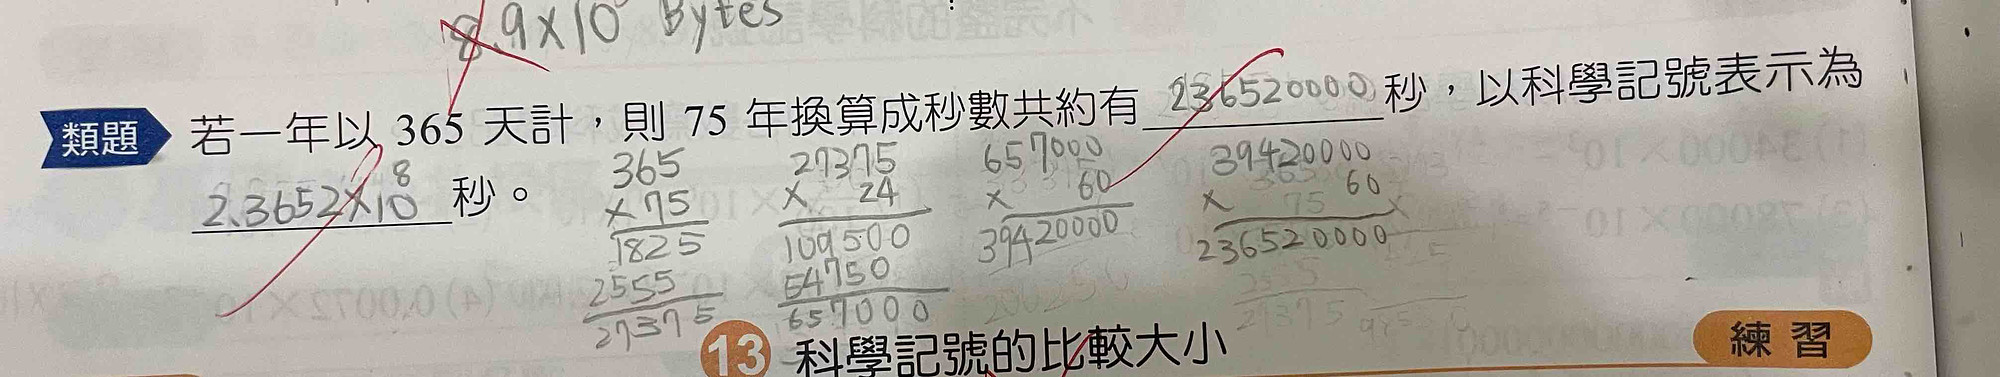 8.9×10 Bytes
類題 若一年以 365 天計，則 75 年換算成秒數共約有 236520000 秒，以科學記號表示為
2.3652×10⁸ 秒。
365
×75
1825
2555
27375
27375
× 24
109500
54750
657000
657000
× 60
39420000
39420000
× 60
2365200000
13 科學記號的比較大小
練習